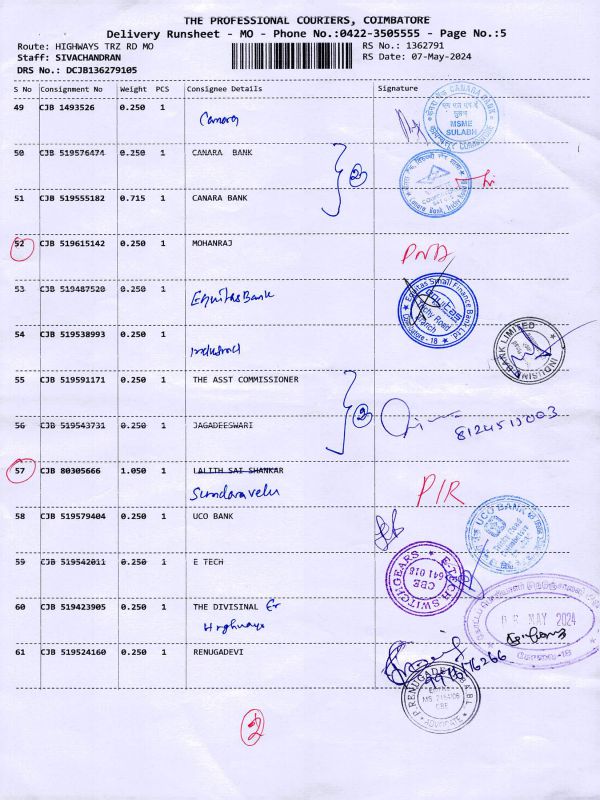 THE PROFESSIONAL COURIERS, COIMBATORE
Delivery Runsheet - MO - Phone No.:0422-3505555 - Page No.:5
Route: HIGHWAYS TRZ RD MO
RS No.: 1362791
Staff: SIVACHANDRAN
RS Date: 07-May-2024
DRS No.: DCJB136279105
S No Consignment No Weight PCS Consignee Details Signature
49 CJB 1493526 0.250 1 Canara
CANARA BANK
MSME
SULABH
50 CJB 519576474 0.250 1 CANARA BANK
2
51 CJB 519555182 0.715 1 CANARA BANK
Canara Bank, Trichy Road
52 CJB 519615142 0.250 1 MOHANRAJ
53 CJB 519487520 0.250 1 Equitas Bank
Equitas Small Finance Bank Ltd
Equitas
Trichy Road
Branch
Coimbatore - 18
54 CJB 519538993 0.250 1 Indusind
INDUSIND BANK LIMITED
55 CJB 519591171 0.250 1 THE ASST COMMISSIONER
2
56 CJB 519543731 0.250 1 JAGADEESWARI
57 CJB 80305666 1.050 1 LALITH SAI SHANKAR
Sundaravelu
P/R
58 CJB 519579404 0.250 1 UCO BANK
UCO BANK
Trichy Road
59 CJB 519542011 0.250 1 E TECH
E-TECH SWITCHGEARS
CBE
641 018
60 CJB 519423905 0.250 1 THE DIVISINAL Er
Highways
MAY 2024
61 CJB 519524160 0.250 1 RENUGADEVI
P. RENUGADEVI
CBE
ADVOCATE
2